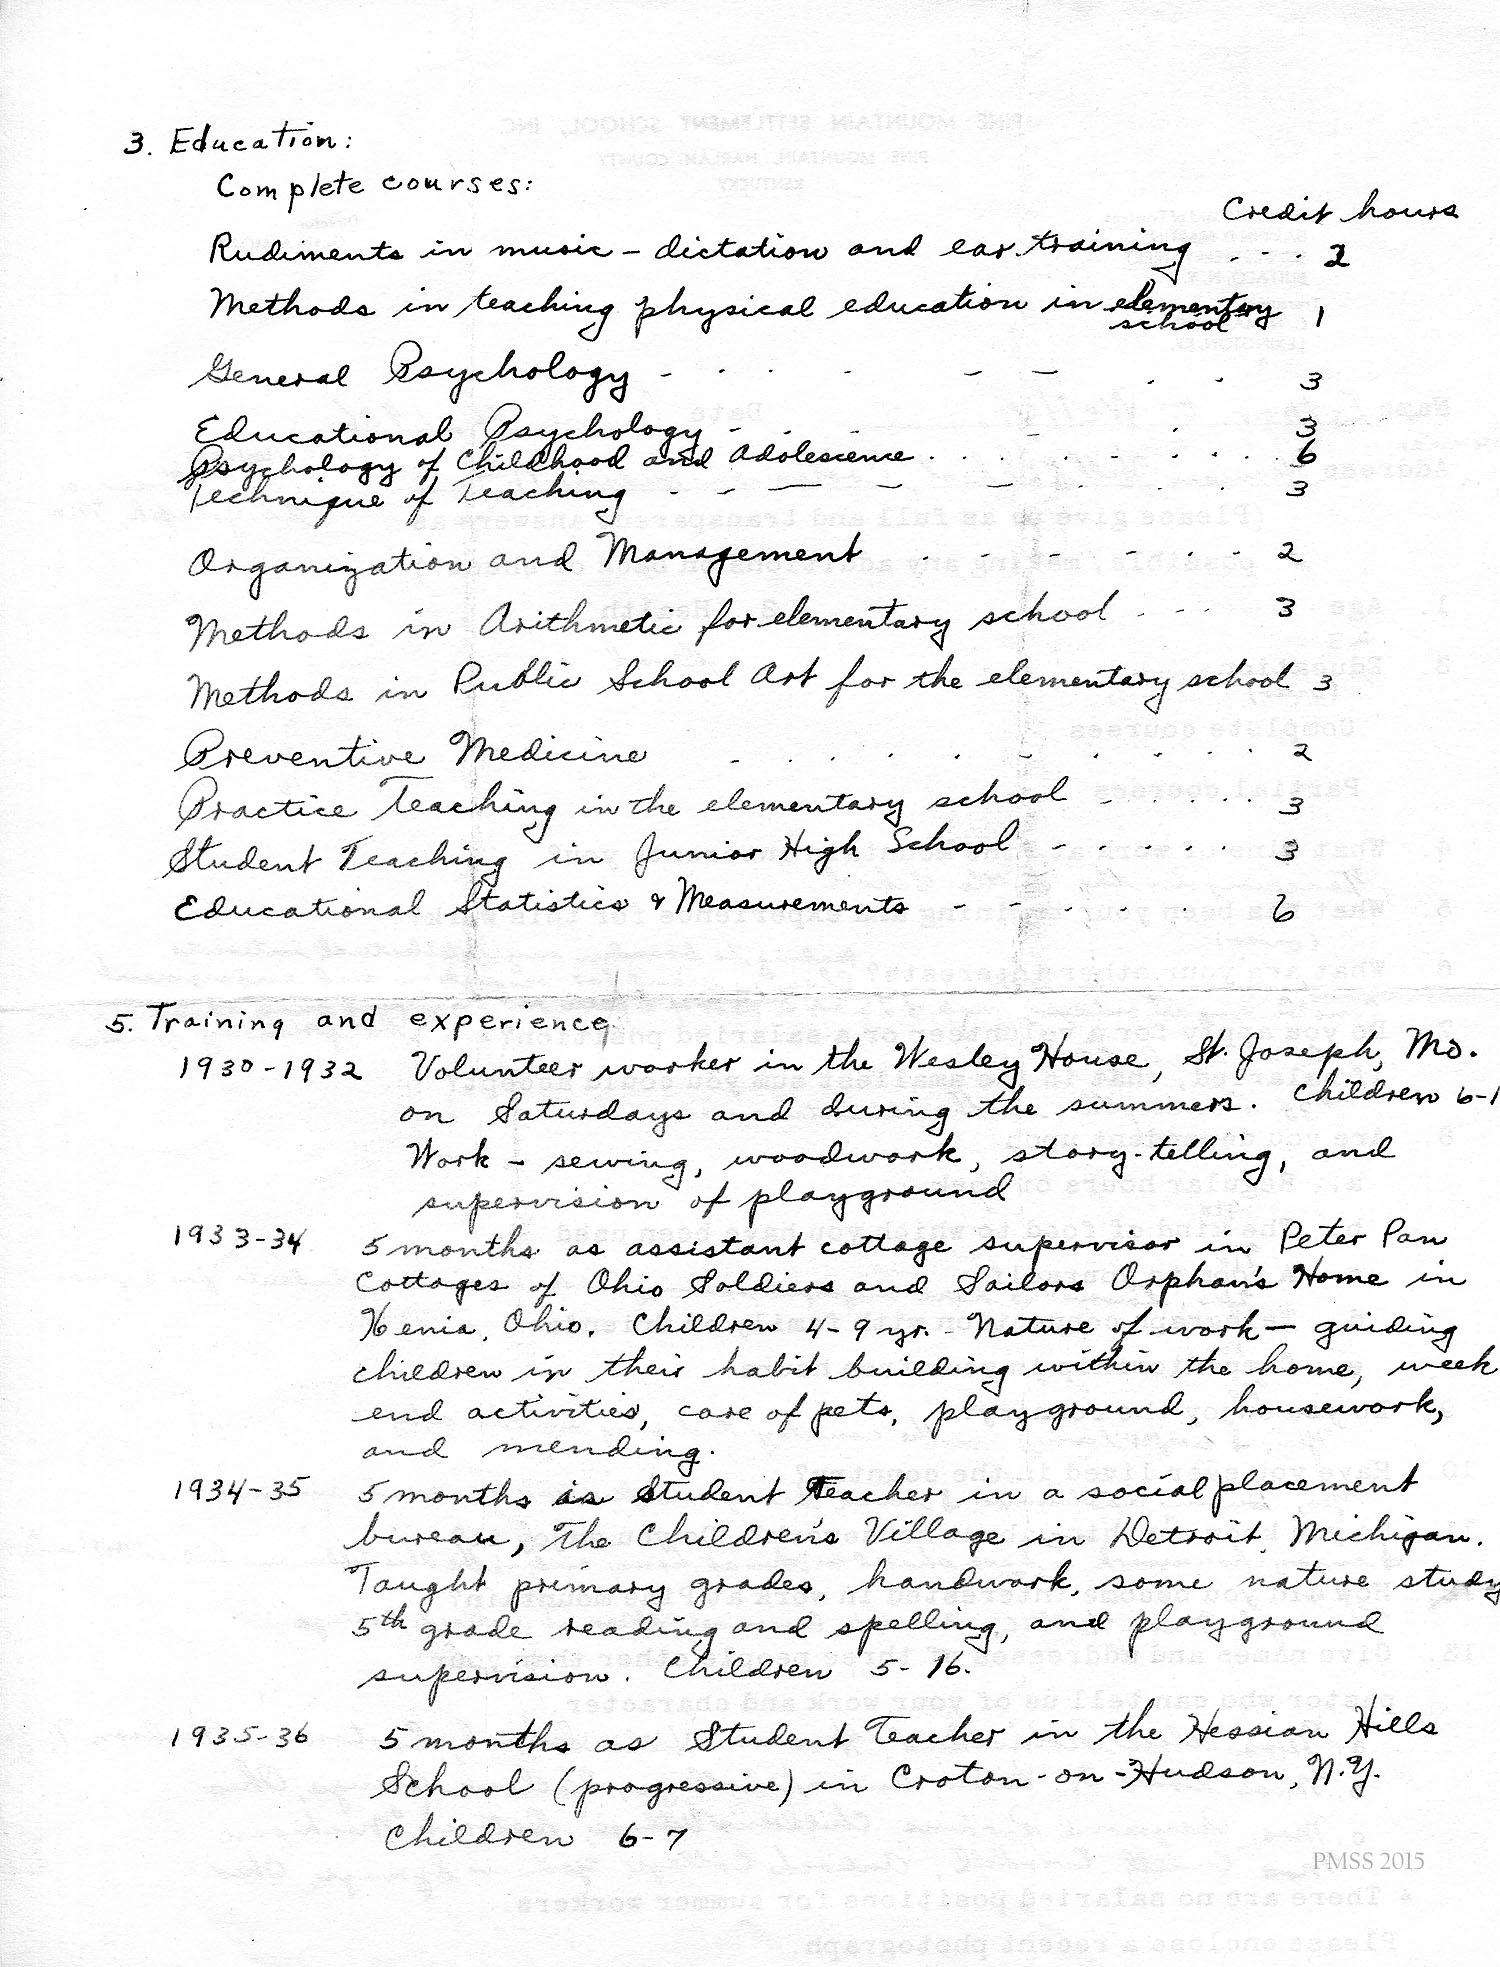 3. Education:
Complete courses:
Credit hours
Rudiments in music - dictation and ear training - - - 2
Methods in teaching physical education in elementary school 1
General Psychology - - - - - - - - 3
Educational Psychology - - - - - - 3
Psychology of Childhood and Adolescence . . . . . . . . . 6
Technique of Teaching - - - - - - - - - 3
Organization and Management - - - - - - - 2
Methods in Arithmetic for elementary school - - - 3
Methods in Public School Art for the elementary school 3
Preventive Medicine - . . . . - . . . . 2
Practice Teaching in the elementary school - . . . . . 3
Student Teaching in Junior High School - - - - - 3
Educational Statistics & Measurements - - - - - - 6
5. Training and experience
1930-1932 Volunteer worker in the Wesley House, St. Joseph, Mo.
on Saturdays and during the summers. Children 6-1
Work - sewing, woodwork, story-telling, and
supervision of playground
1933-34 5 months as assistant cottage supervisor in Peter Pan
Cottages of Ohio Soldiers and Sailors Orphan's Home in
Xenia, Ohio. Children 4-9 yr. - Nature of work - guiding
children in their habit building within the home, week
end activities, care of pets, playground, housework,
and mending.
1934-35 5 months as Student Teacher in a social placement
bureau, The Children's Village in Detroit, Michigan.
Taught primary grades, handwork, some nature study
5th grade reading and spelling, and playground
supervision. Children 5-16.
1935-36 5 months as Student Teacher in the Hessian Hills
School (progressive) in Croton-on-Hudson, N.Y.
Children 6-7
PMSS 2015